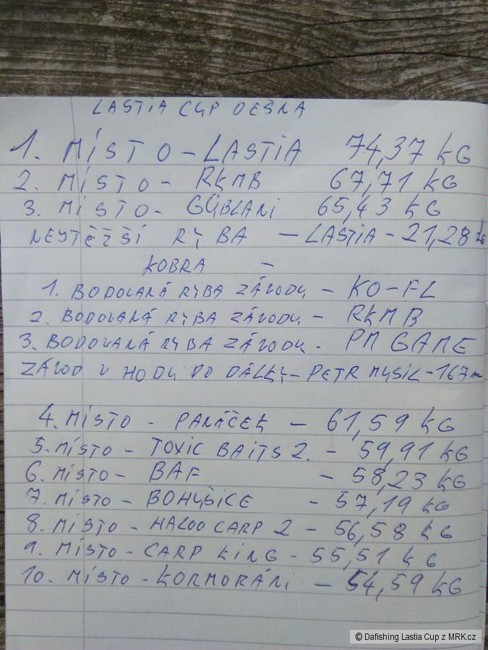 LASTIA CUP DEŠNÁ
1. MÍSTO - LASTIA 74,37 KG
2. MÍSTO - RKMB 67,71 KG
3. MÍSTO - GÝBLANI 65,43 KG
NEJTĚŽŠÍ RYBA - LASTIA - 21,28 KG
KOBRA -
1. BODOVANÁ RYBA ZÁVODU - KO-FL
2. BODOVANÁ RYBA ZÁVODU - RKMB
3. BODOVANÁ RYBA ZÁVODU - PM GAME
ZÁVOD V HODU DO DÁLKY - PETR MUSIL - 167 m
4. MÍSTO - PANÁČEK - 61,59 KG
5. MÍSTO - TOXIC BAITS 2 - 59,91 KG
6. MÍSTO - BAF - 58,23 KG
7. MÍSTO - BOHUŠICE - 57,19 KG
8. MÍSTO - HALOO CARP 2 - 56,58 KG
9. MÍSTO - CARP KING - 55,51 KG
10. MÍSTO - KORMORÁNI - 54,59 KG
© Dafishing Lastia Cup z MRK.cz